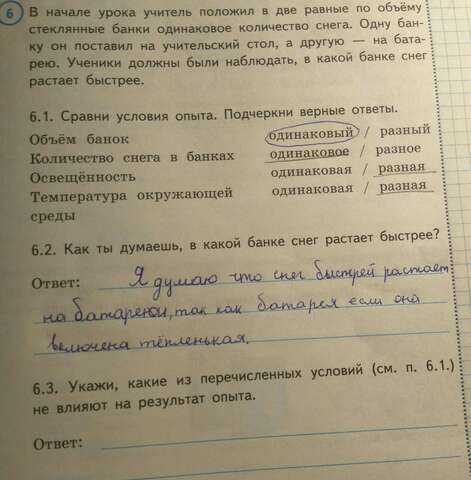 6 В начале урока учитель положил в две равные по объёму
стеклянные банки одинаковое количество снега. Одну бан-
ку он поставил на учительский стол, а другую — на бата-
рею. Ученики должны были наблюдать, в какой банке снег
растает быстрее.
6.1. Сравни условия опыта. Подчеркни верные ответы.
Объём банок одинаковый / разный
Количество снега в банках одинаковое / разное
Освещённость одинаковая / разная
Температура окружающей одинаковая / разная
среды
6.2. Как ты думаешь, в какой банке снег растает быстрее?
Ответ: Я думаю что снег быстрей растает
на батарееи, так как батарея если она
включена тёпленькая.
6.3. Укажи, какие из перечисленных условий (см. п. 6.1.)
не влияют на результат опыта.
Ответ: